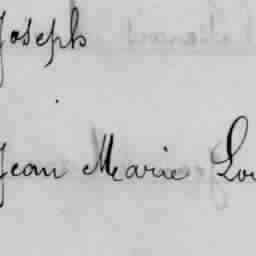 Joseph
Jean Marie Lou